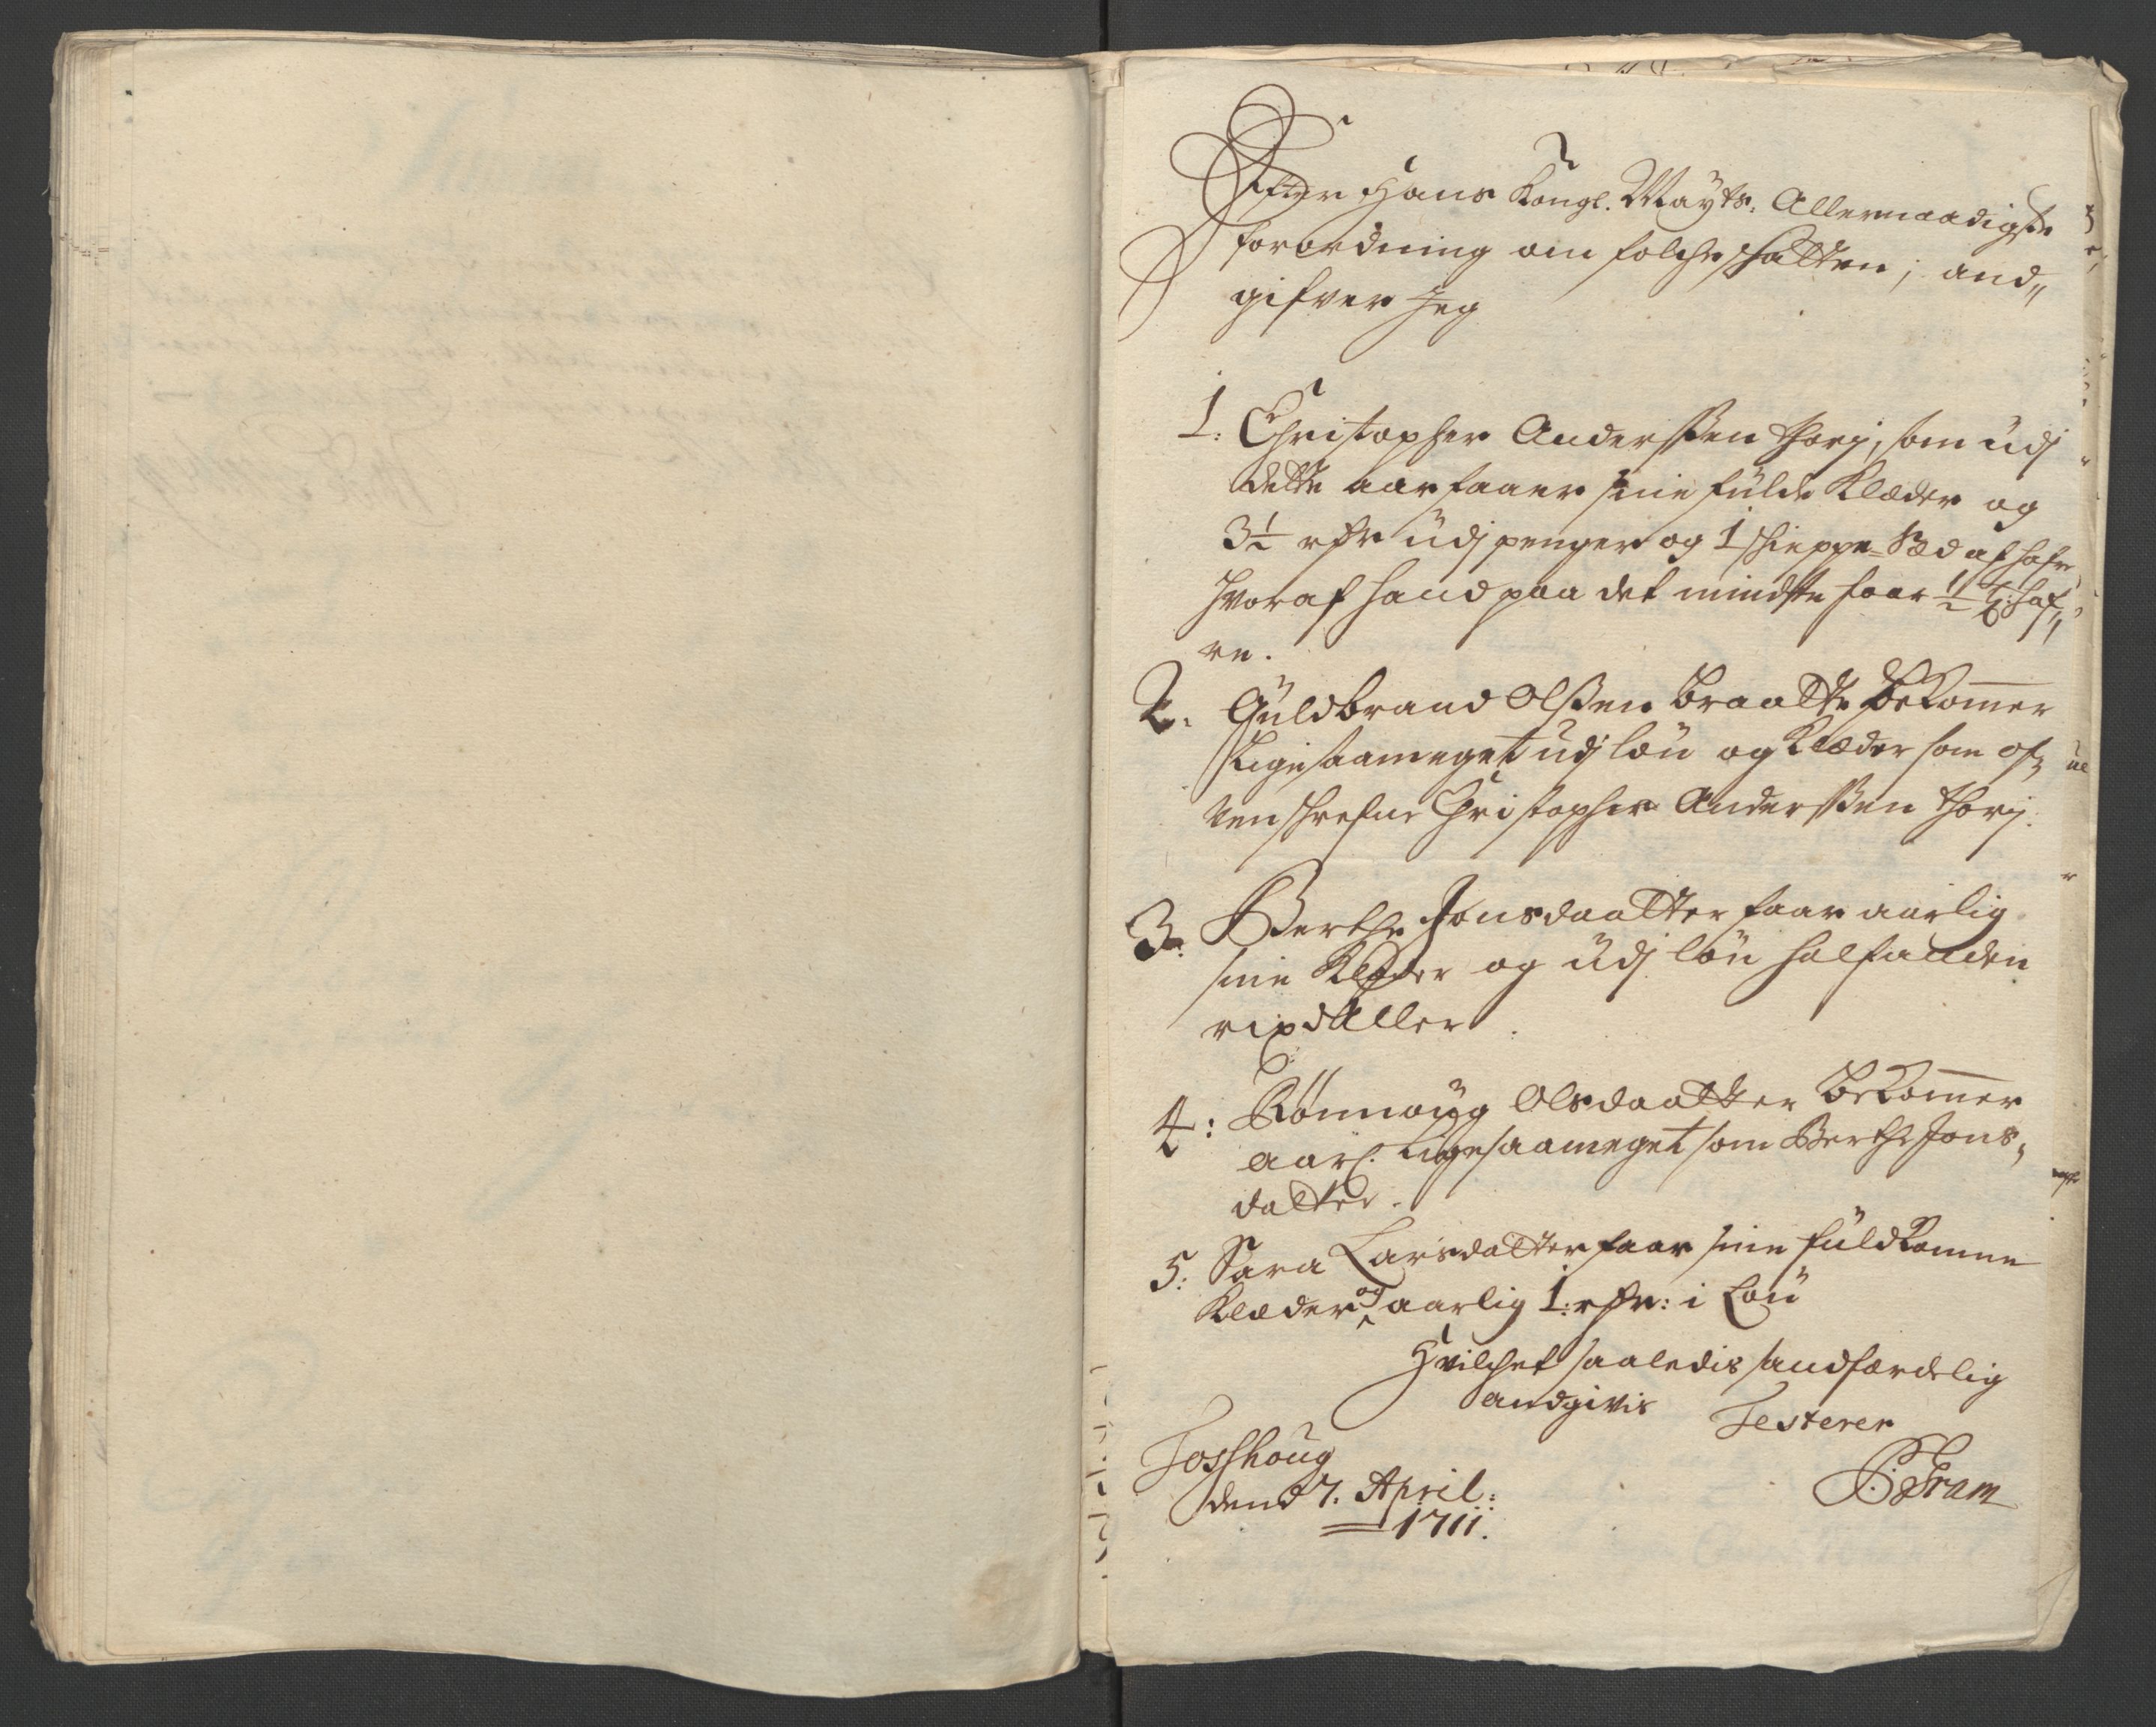 Efter Hans Kongl. Mayts: Allernaadigste
forordning om folcheskatten; and„
gifver Jeg
1: Christopher Anderssen Thorj, som udj
dette aar faaer sine fulde Klæder og
3½ rdr udj penger og 1 skieppe-Sæd af hafr
hvoraf hand paa det mindste faar ½ Tj: haf„
re.
2. Guldbrand Olssen Braatte bekommer
Ligesaameget udj løn og Klæder som of„
venskrefne Christopher Anderssen Thorj.
3. Berthe Jonsdaatter faar aarlig
sine Klæder og udj løn halfanden
rixdaller.
4: Rønnoug Olsdaatter bekommer
aarl. Ligesaameget som Berthe Jons„
datter.
5: Sara Larsdatter faar sine fuldkomne
Klæder og aarlig 1: rdr: i Løn
Hvilchet saaledis sandfærdelig
andgivis Testerer
Fosshoug
dend 7. April:
1711.
P: Fram